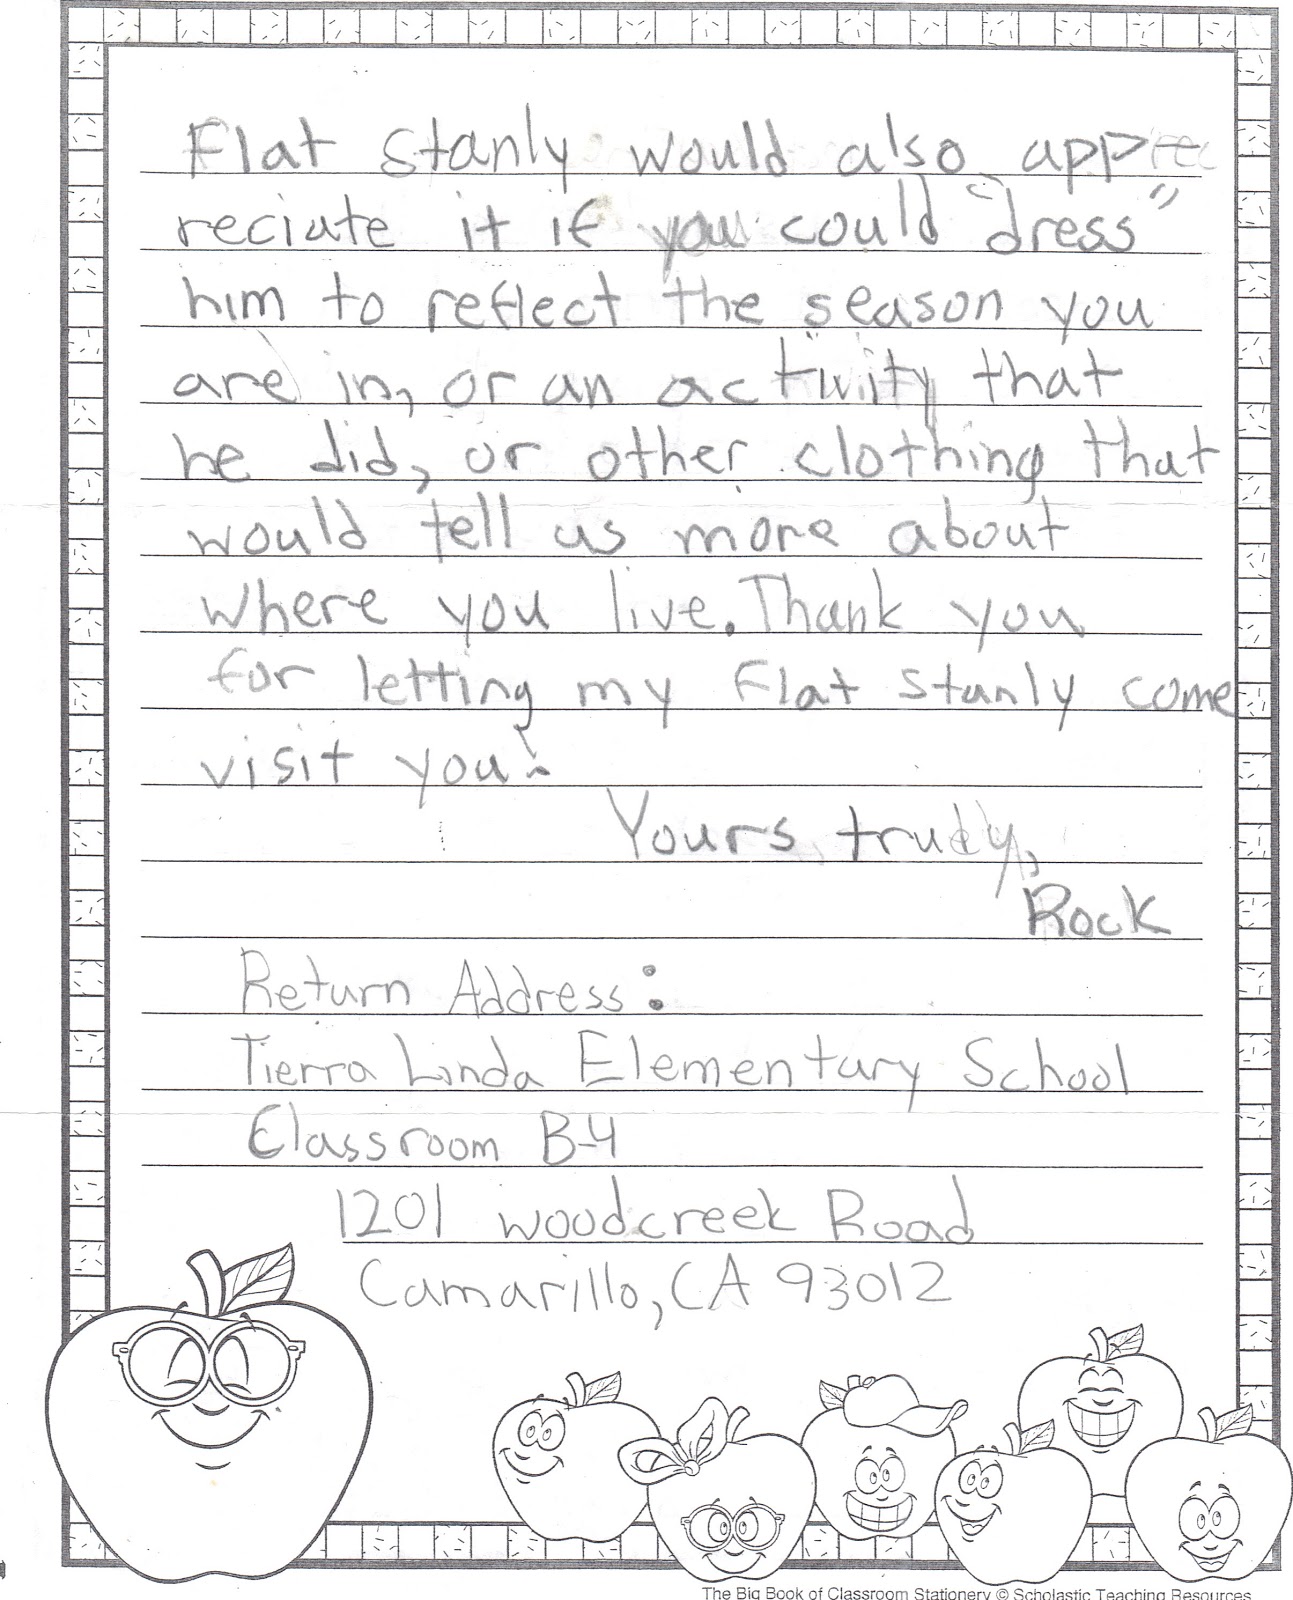 Flat Stanly would also app
reciate it if you could "dress"
him to reflect the season you
are in, or an activity that
he did, or other clothing that
would tell us more about
where you live. Thank you
for letting my Flat Stanly come
visit you.
Yours truly,
Rock
Return Address:
Tierra Linda Elementary School
Classroom B-4
1201 woodcreek Road
Camarillo, CA 93012
The Big Book of Classroom Stationery © Scholastic Teaching Resources